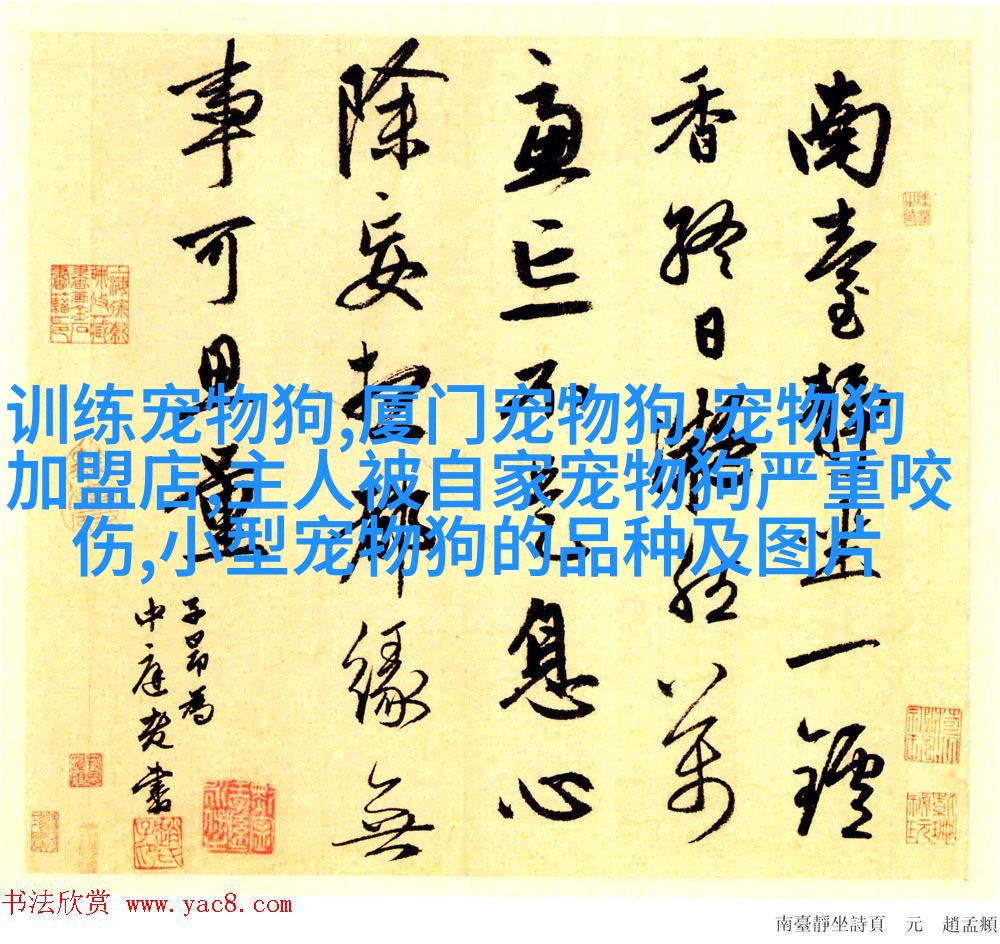 南臺靜坐一鑪
香終日凝然萬
慮亡不是息心
除妄想都緣無
事可思量
子昂為
中庭老書
训练宠物狗,厦门宠物狗,宠物狗
加盟店,主人被自家宠物狗严重咬
伤,小型宠物狗的品种及图片
书法欣赏 www.yac8.com
南臺靜坐詩頁 元 趙孟頫